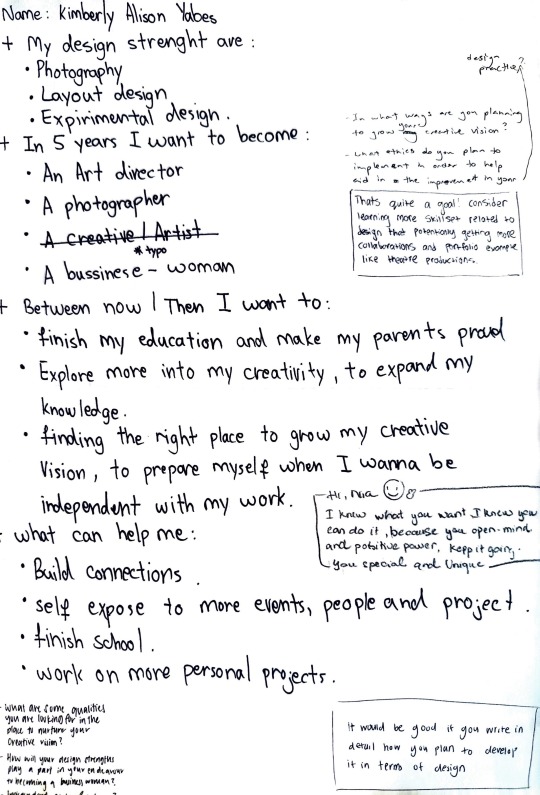 Name: Kimberly Alison Yabes
+ My design strenght are:
• Photography
• Layout design
• Expirimental design.
+ In 5 years I want to become:
• An Art director
• A photographer
• A creative / Artist
* typo
• A bussinese - woman
+ Between now / Then I want to:
• finish my education and make my parents proud
• Explore more into my creativity, to expand my
knowledge.
• finding the right place to grow my creative
Vision, to prepare myself when I wanna be
independent with my work.
- what can help me:
• Build connections.
• self expose to more events, people and project.
• finish school.
• work on more personal projects.
design
practice?
- In what ways are you planning
to grow your creative vision?
- what ethics do you plan to
implement in order to help
aid in the improvemet in your
Thats quite a goal! consider
learning more skillset related to
design that potentially getting more
collaborations and portfolio example
like theatre productions.
Hi, Nia
I know what you want I know you
can do it, because you open-mind
and positive power. Kepp it going.
you special and Unique
- what are some qualities
you are looking for in the
place to nurture your
Creative vision?
- How will your design strengths
play a part in your endeavour
to becoming a business woman?
It would be good if you write in
detail how you plan to develop
it in terms of design